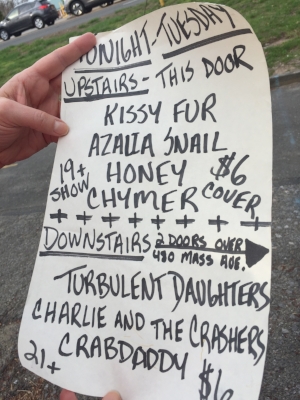 TONIGHT - TUESDAY
UPSTAIRS - THIS DOOR
KISSY FUR
AZALIA SNAIL
HONEY
CHYMER
19+
SHOW
$6
COVER
DOWNSTAIRS 2 DOORS OVER
480 MASS AVE.
TURBULENT DAUGHTERS
CHARLIE AND THE CRASHERS
CRABDADDY
21+
$6